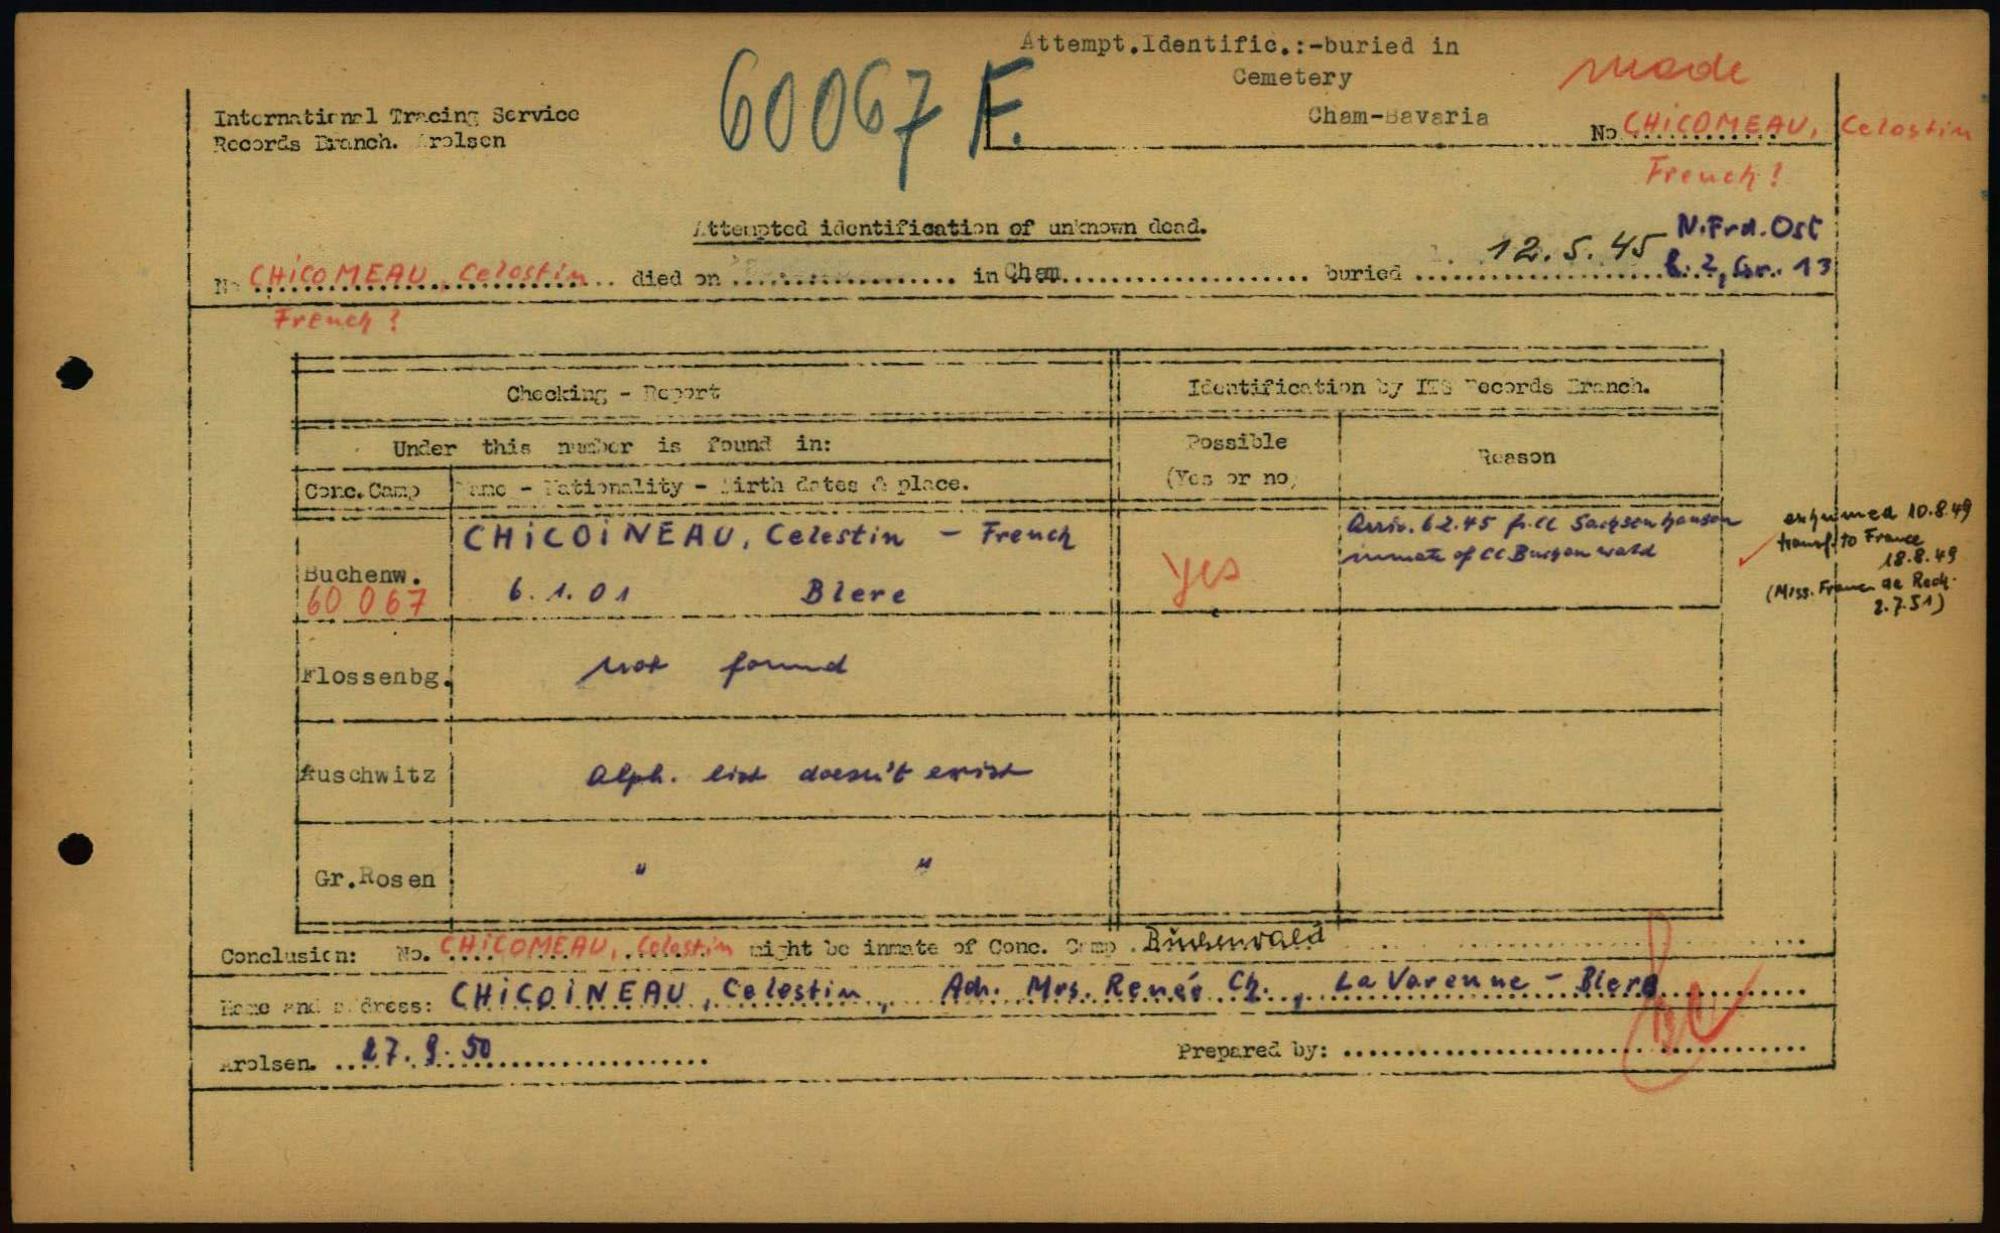 Attempt.Identific.:-buried in
Cemetery
Cham-Bavaria
made
60067 F.
International Tracing Service
Records Branch. Arolsen
No. CHICOMEAU, Celestin
French?
Attempted identification of unknown dead.
N.Frd.Ost
No CHICOMEAU, Celestin died on in Cham buried 12.5.45 R. 2, Gr. 13
French?
Checking - Report
Identification by ITS Records Branch.
Under this number is found in:
Possible
(Yes or no)
Reason
Conc.Camp
Name - Nationality - Birth dates & place.
Buchenw.
60 067
CHICOINEAU, Celestin - French
6.1.01 Blere
yes
Arriv. 6.2.45 fr. CC Sachsenhausen
inmate of CC Buchenwald
exhumed 10.8.49
transf. to France
18.8.49
(Miss. Franc de Rech.
2.7.51)
Flossenbg.
not found
Auschwitz
Alph. list doesn't exist
Gr.Rosen
" "
Conclusion: No. CHICOMEAU, Celestin might be inmate of Conc. Camp Buchenwald
Name and address: CHICOINEAU, Celestin, Adr. Mrs. Renée Ch., La Varenne - Blere
Arolsen. 27.9.50
Prepared by: